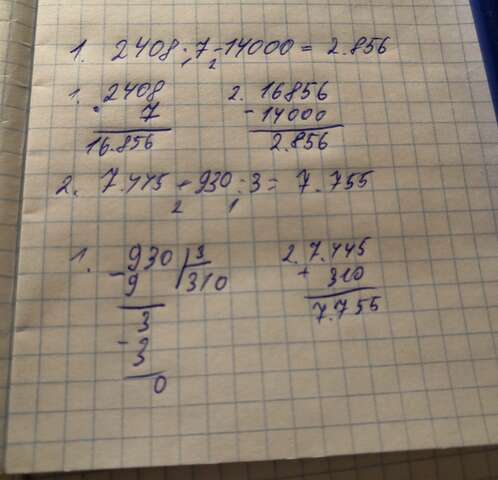 1. 2408 · 7 - 14000 = 2.856
1 2
1. 2408
· 7
16.856
2. 16856
- 14000
2.856
2. 7.445 + 930 : 3 = 7.755
2 1
1. 930 | 3
- 9 310
3
- 3
0
2. 7.445
+ 310
7.755